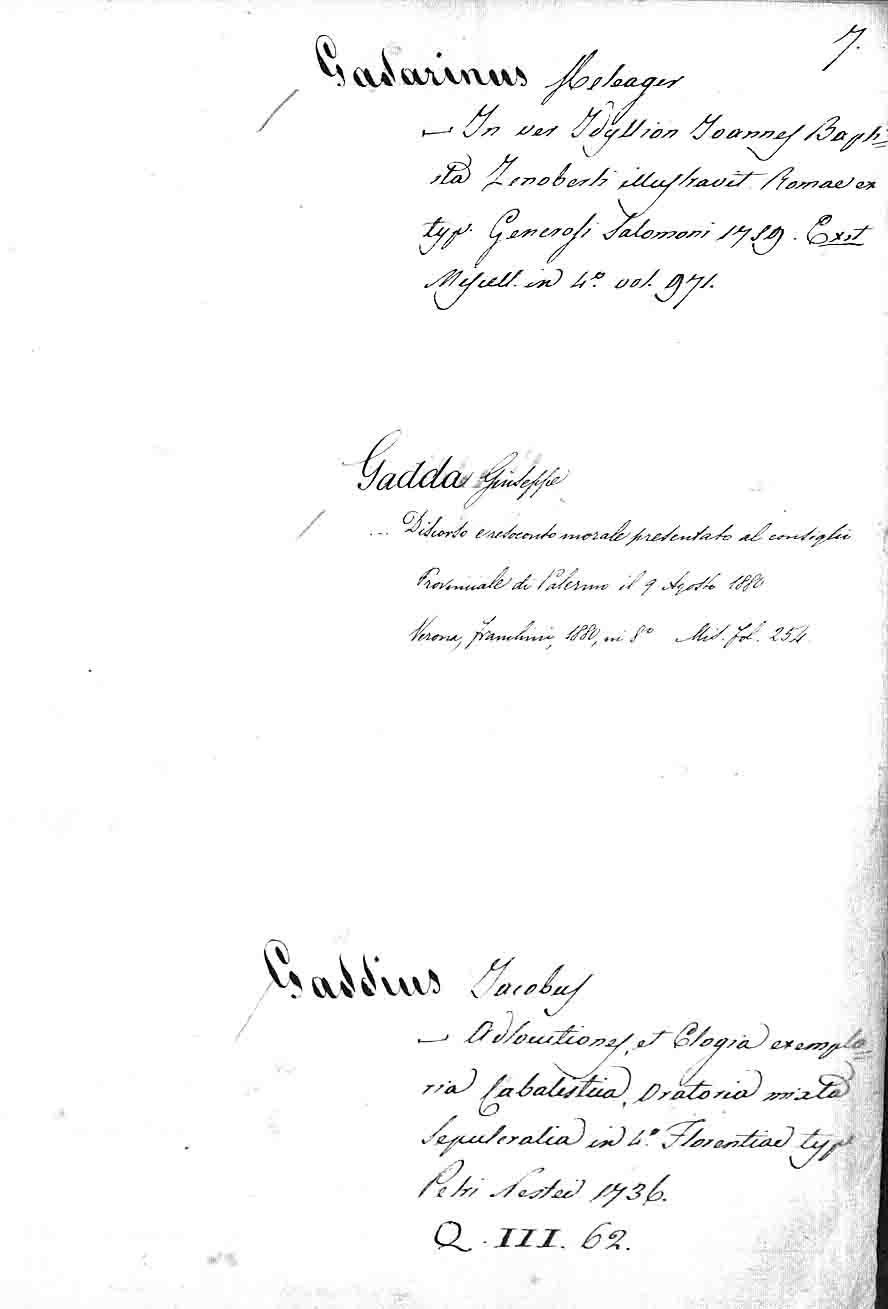 7.
Gadarinus Meleager
— In ver Idyllion Joannes Bapti=
sta Zenoberti illustravit Romae ex
typ. Generosi Salomoni 1759. Exst
Miscell. in 4.° vol. 971.
Gadda Giuseppe
... Discorso e resoconto morale presentato al consiglio
Provinciale di Palermo il 9 Agosto 1880
Verona, Franchini, 1880, in 8° Mis. fol. 254.
Gaddius Jacobus
— Adlocutiones, et Elogia exempla=
ria Cabalistica, Oratoria mixta
Sepulcralia in 4.° Florentiae typ
Petri Nestei 1736.
Q. III. 62.